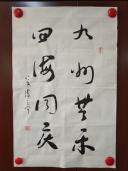 九州共乐
四海同庆